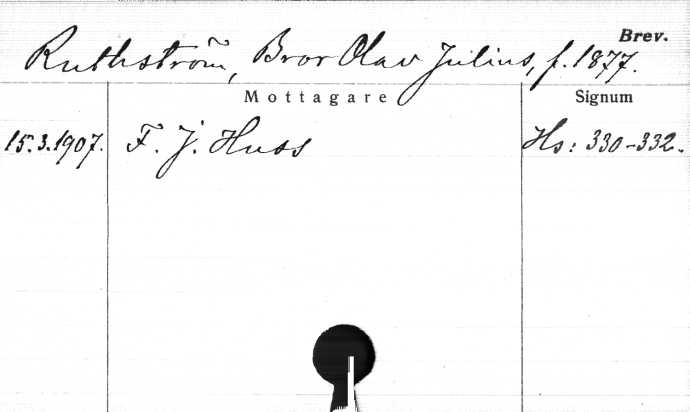 Brev.
Ruthström, Bror Olav Julius, f. 1877.
Mottagare Signum
15.3.1907. F. J. Huss Hs: 330-332.